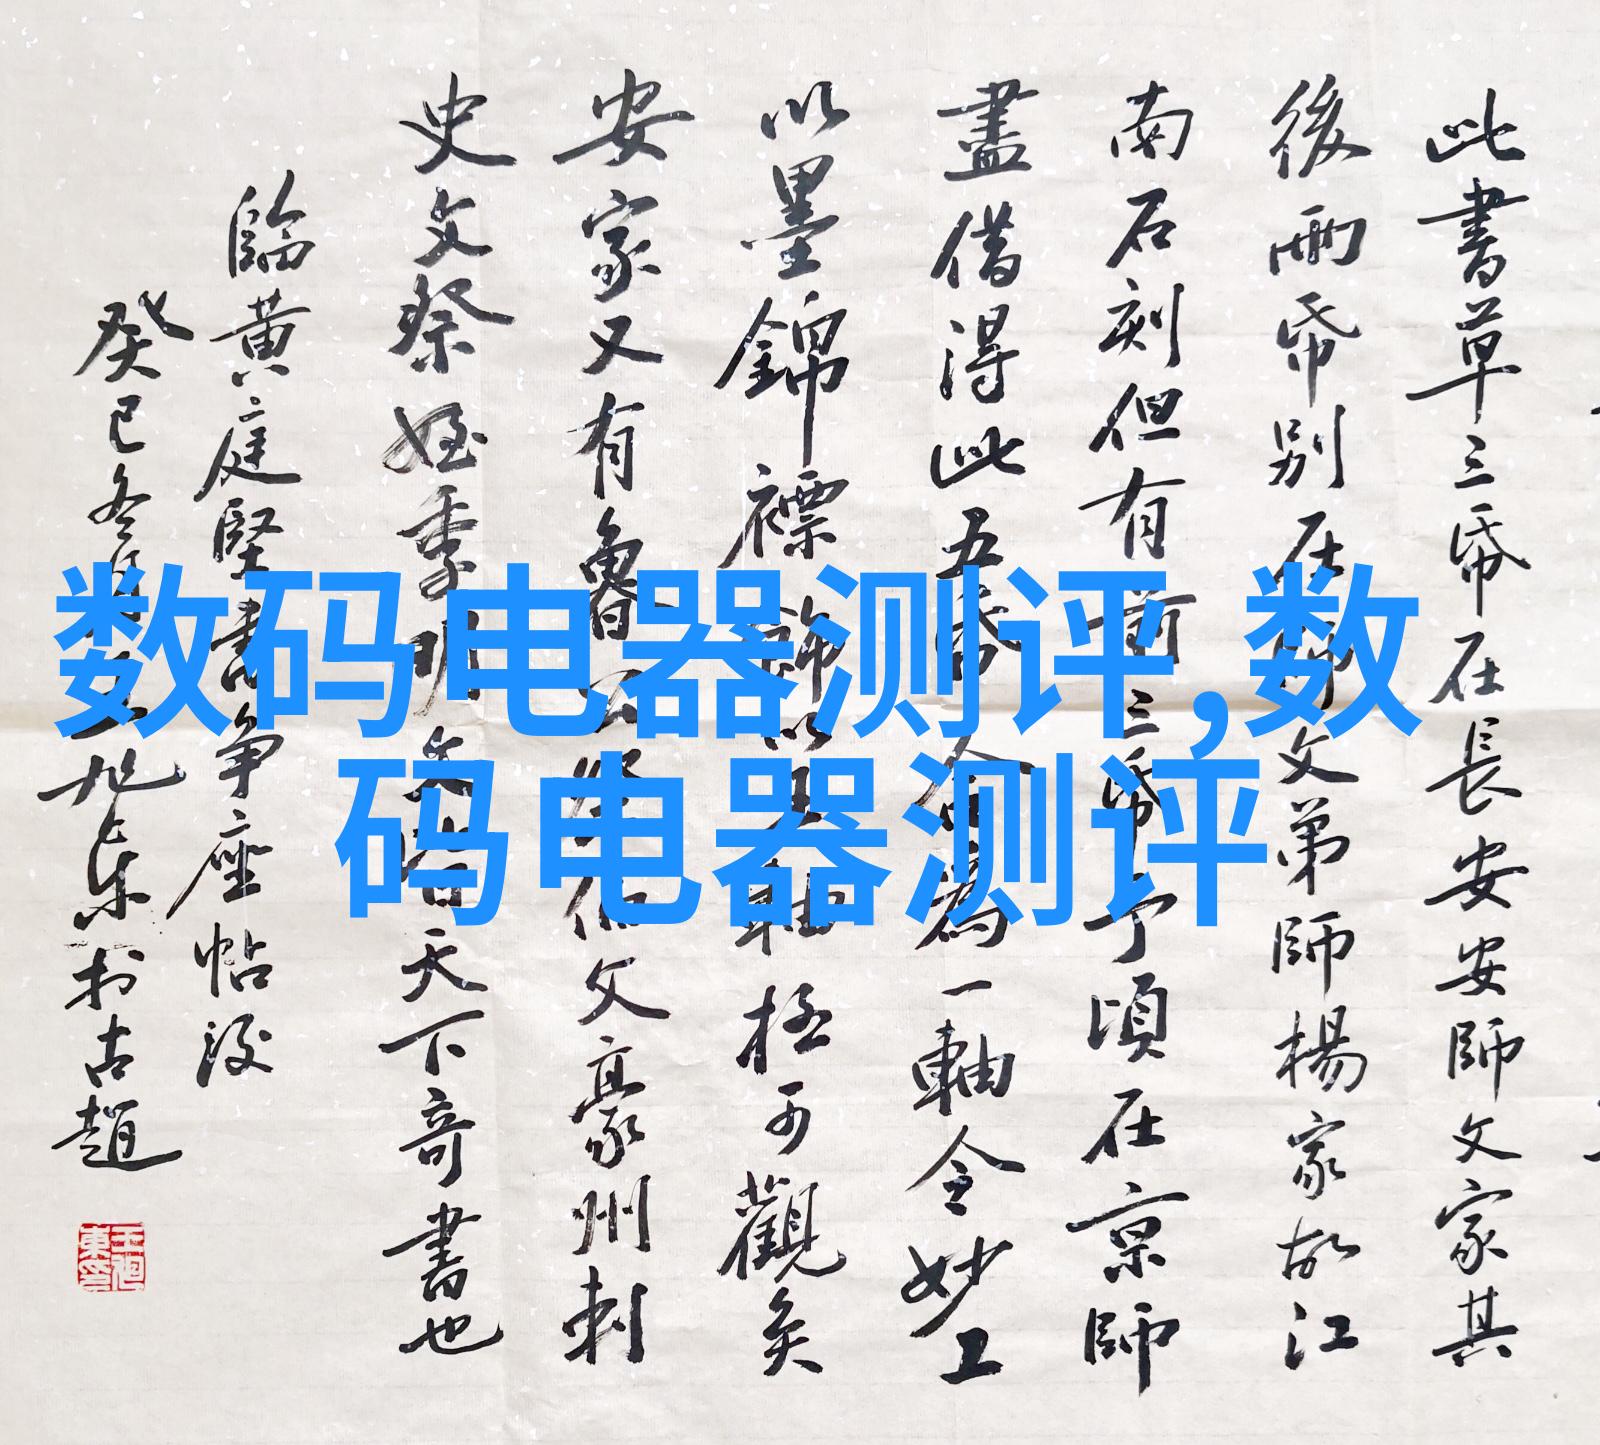 此書草三帋在長安安師文家其
後兩帋別在師文弟師楊家故江
南石刻但有前三帋予頃在京師
盡借得此五帋合為一軸令妙工
以墨錦褾飾以玉軸極可觀矣
安家又有魯公祭伯父豪州刺
史文祭姪季明文皆天下奇書也
臨黄庭堅書争座帖後
癸巳冬月王旭东於古趙
数码电器测评,数
码电器测评